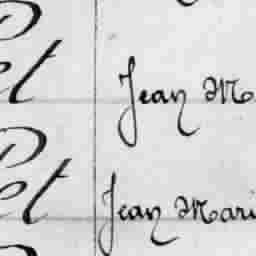 et Jean M
et Jean Mari